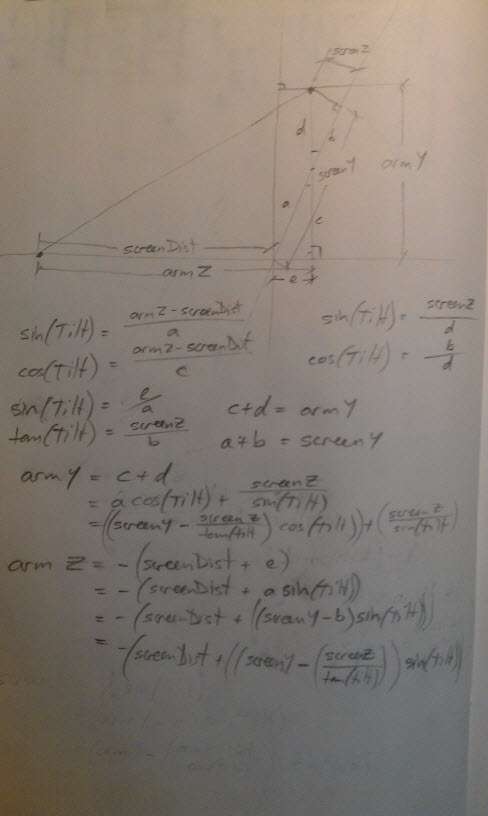 screenZ
d
b
armY
screenY
a
c
screenDist
armZ
e
sin(Tilt) = armZ - screenDist / a
sin(Tilt) = screenZ / d
cos(Tilt) = armZ - screenDist / c
cos(Tilt) = b / d
sin(Tilt) = e / a
c + d = armY
tan(Tilt) = screenZ / b
a + b = screenY
armY = c + d
= a cos(Tilt) + screenZ / sin(Tilt)
= ((screenY - screenZ / tan(tilt)) cos(tilt)) + (screenZ / sin(tilt)
arm Z = -(screenDist + e)
= -(screenDist + a sin(Tilt))
= -(sreenDist + ((sreenY - b) sin(Tilt)))
= -(screenDist + ((screenY - (screenZ / tan(Tilt))) sin(Tilt))